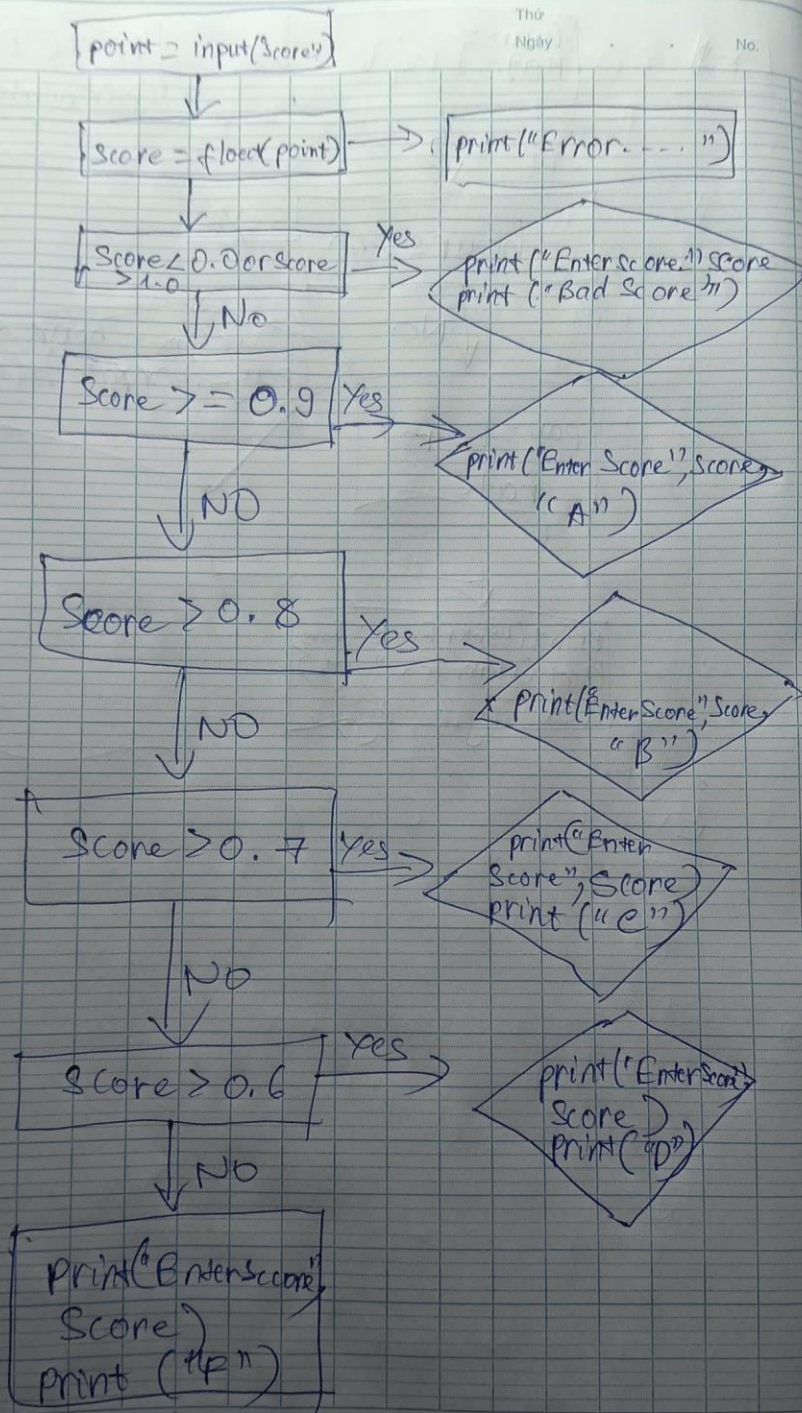 Thứ
Ngày
No.
point = input("Score")
Score = float(point)
print("Error. ... ")
Score < 0.0 or score
> 1.0
Yes
print ("Enter score." score
print ("Bad Score")
No
Score >= 0.9
Yes
print("Enter Score", score,
"A")
NO
Score > 0.8
Yes
print("Enter Score", Score,
"B")
NO
Score > 0.7
Yes
print("Enter
Score", Score)
print ("C")
NO
Score > 0.6
Yes
print("Enter Score",
Score)
print("D")
NO
print("Enter Sccore",
Score)
print ("F")